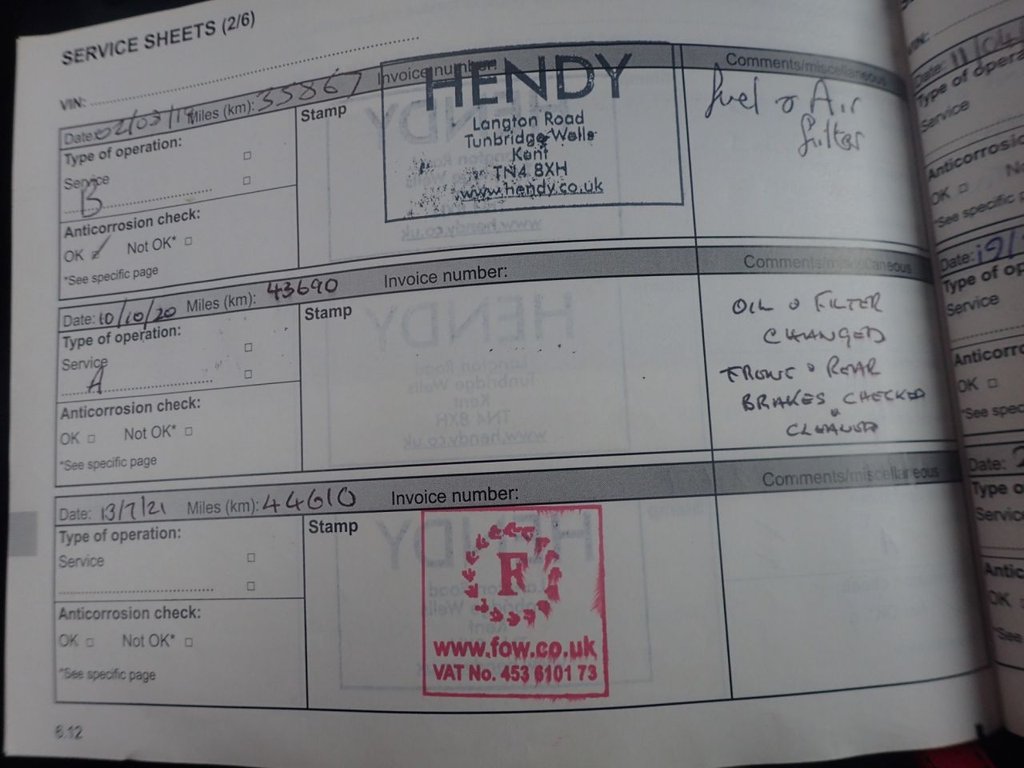 SERVICE SHEETS (2/6)
VIN:
Date: 02/03/19 Miles (km): 35867 Invoice number:
Comments/miscellaneous
Type of operation:
Service
B
Anticorrosion check:
OK Not OK*
*See specific page
Stamp
HENDY
Langton Road
Tunbridge Wells
Kent
TN4 8XH
www.hendy.co.uk
fuel & Air
filter
Date: 10/10/20 Miles (km): 43690 Invoice number:
Comments/miscellaneous
Type of operation:
Service
A
Anticorrosion check:
OK Not OK*
*See specific page
Stamp
OIL & FILTER
CHANGED
FRONT & REAR
BRAKES CHECKED
&
CLEANED
Date: 13/7/21 Miles (km): 44610 Invoice number:
Comments/miscellaneous
Type of operation:
Service
Anticorrosion check:
OK Not OK*
*See specific page
Stamp
F
www.fow.co.uk
VAT No. 453 6101 73
6.12
Date: 11/04
Type of opera
Service
Anticorrosio
OK No
*See specific p
Date: 19/
Type of op
Service
Anticorro
OK
*See spec
Date:
Type o
Servic
Antic
OK
*See